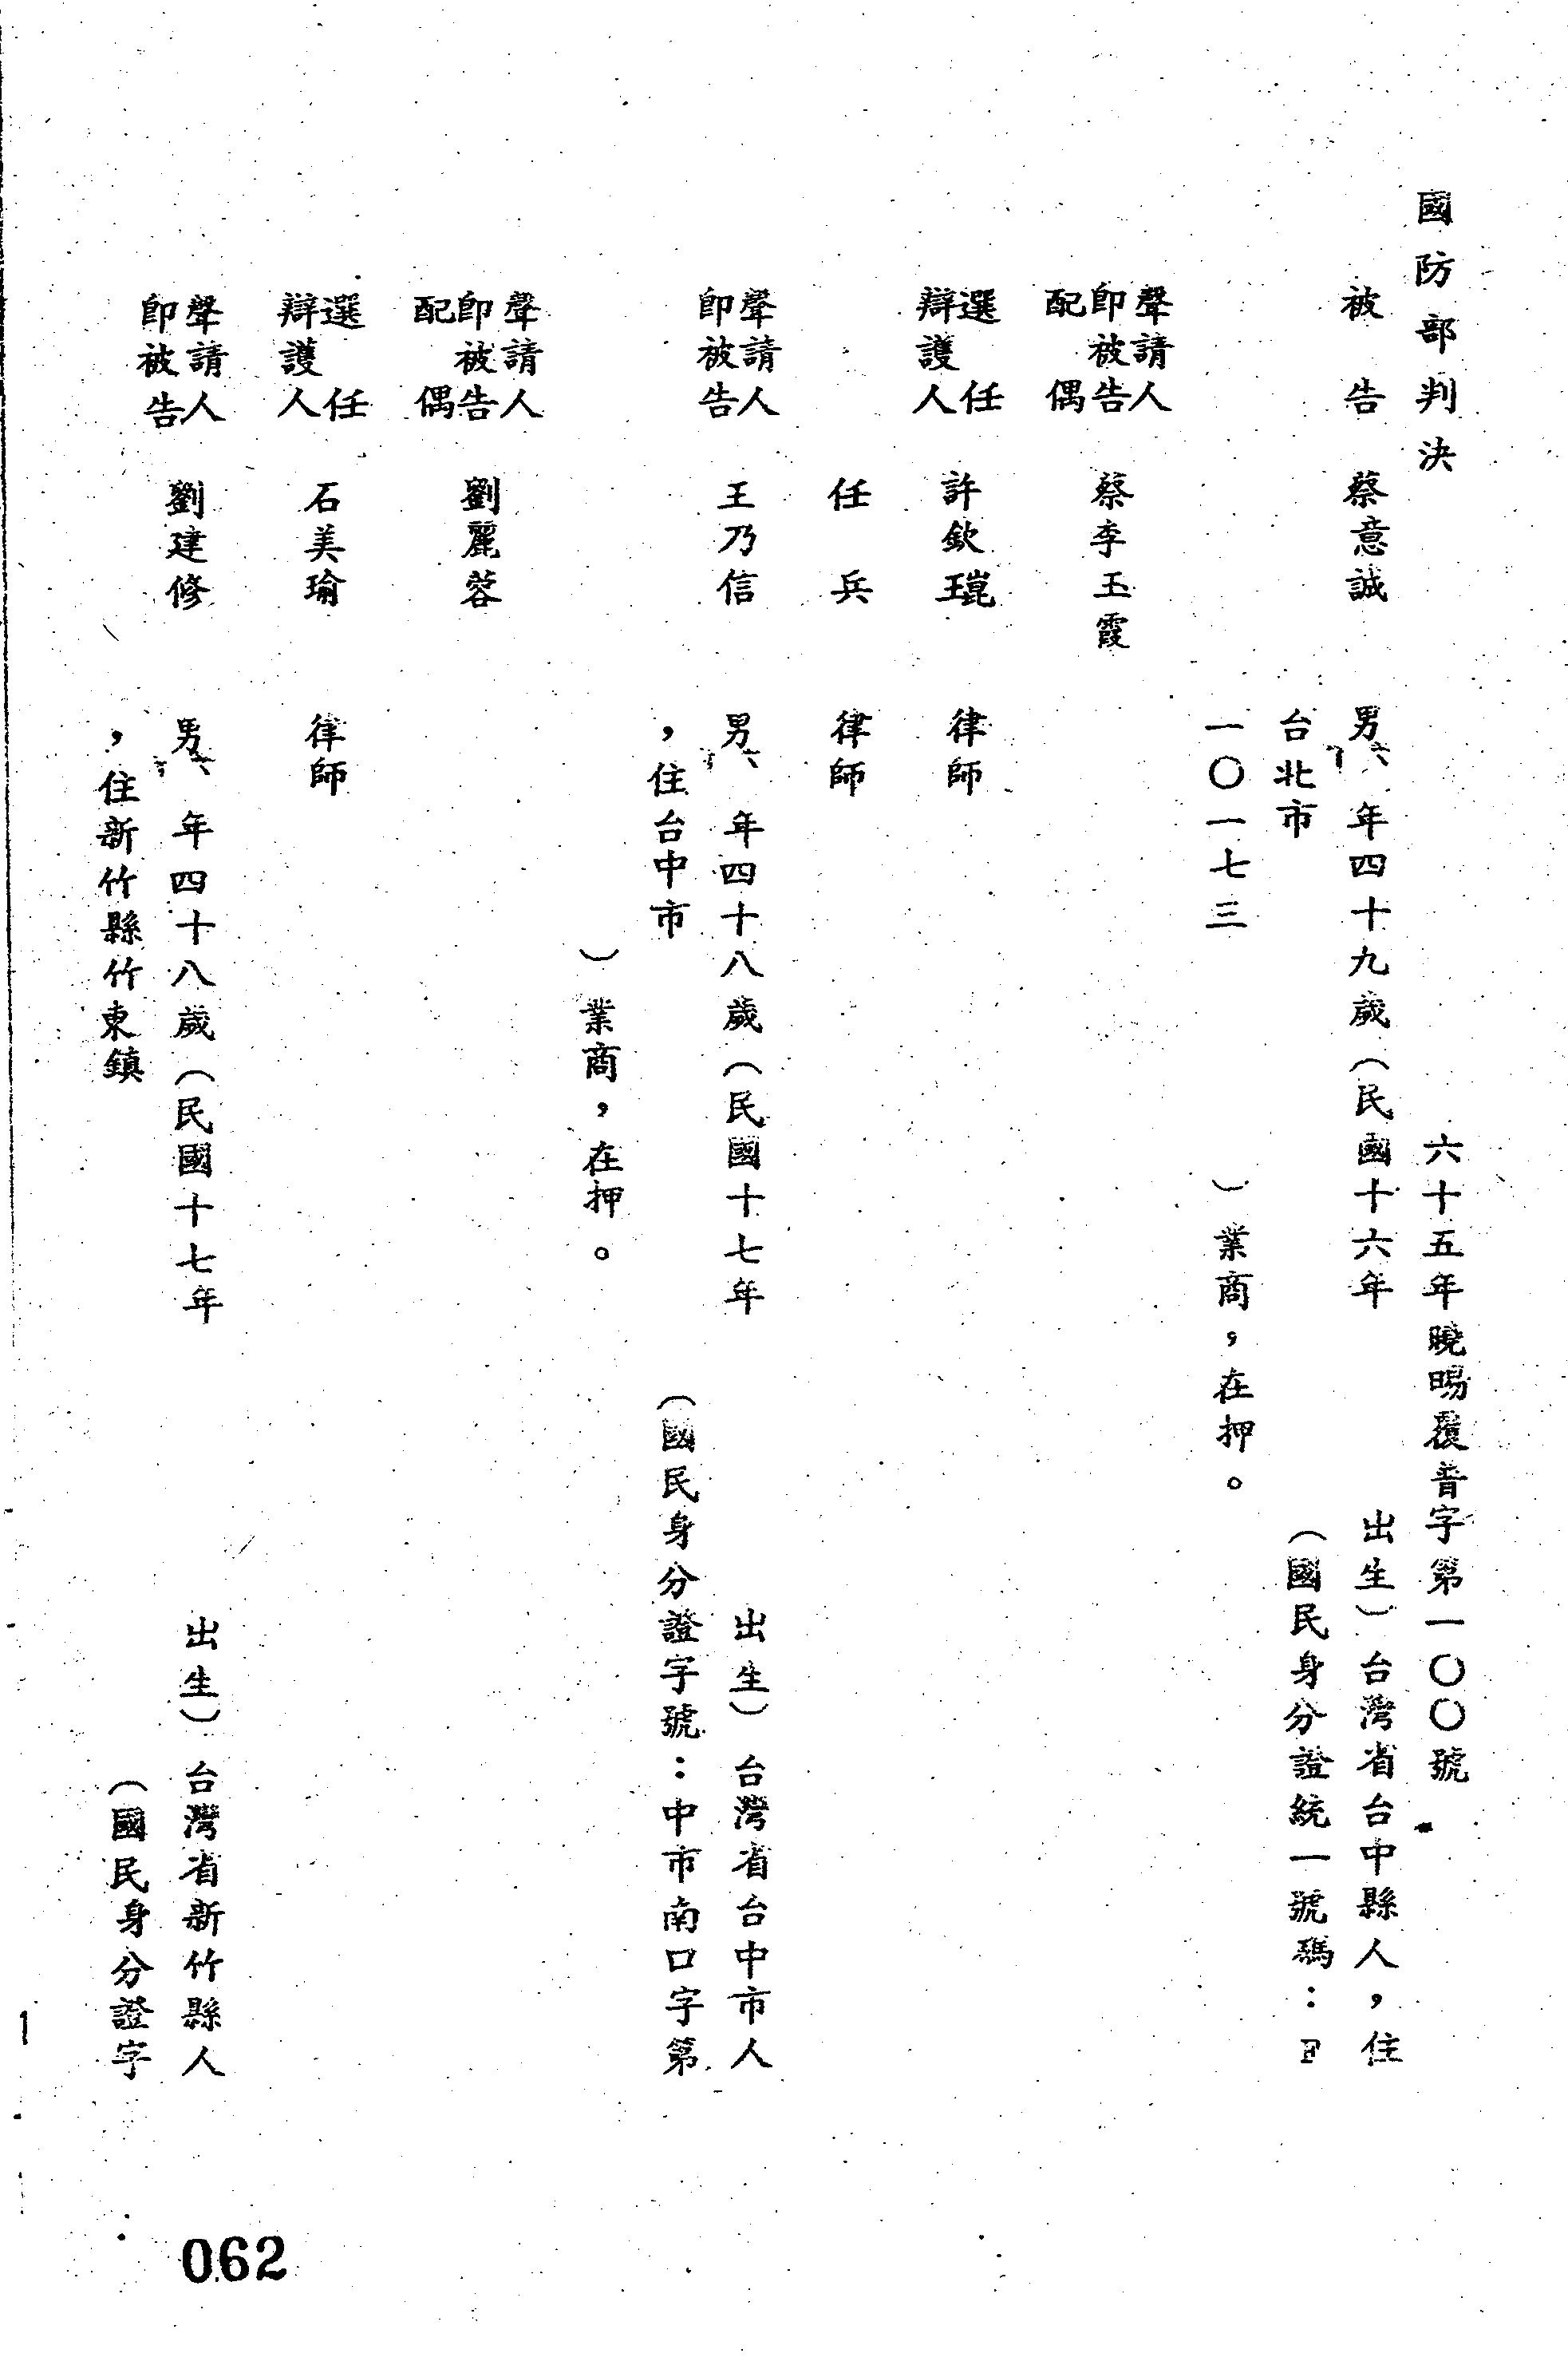 國防部判決
六十五年曉晹覆普字第一〇〇號
被告 蔡意誠 男 年四十九歲(民國十六年 出生)台灣省台中縣人,住
台北市 (國民身分證統一號碼:F
一〇一七三 )業商,在押。
聲請人即被告配偶 蔡李玉霞
選任辯護人 許欽琨 律師
任兵 律師
聲請人即被告 王乃信 男 年四十八歲(民國十七年 出生)台灣省台中市人
,住台中市 (國民身分證字號:中市南口字第
)業商,在押。
聲請人即被告配偶 劉麗蓉
選任辯護人 石美瑜 律師
聲請人即被告 劉建修 男 年四十八歲(民國十七年 出生)台灣省新竹縣人
,住新竹縣竹東鎮 (國民身分證字
1
062